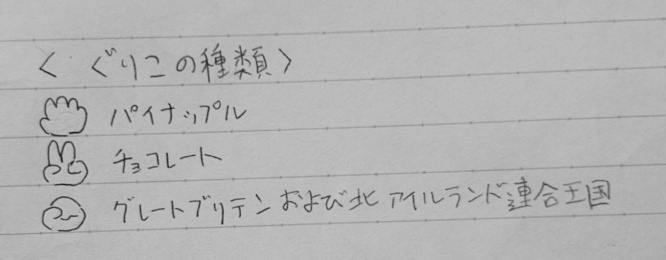 ＜ ぐりこの種類＞
パイナップル
チョコレート
グレートブリテンおよび北アイルランド連合王国